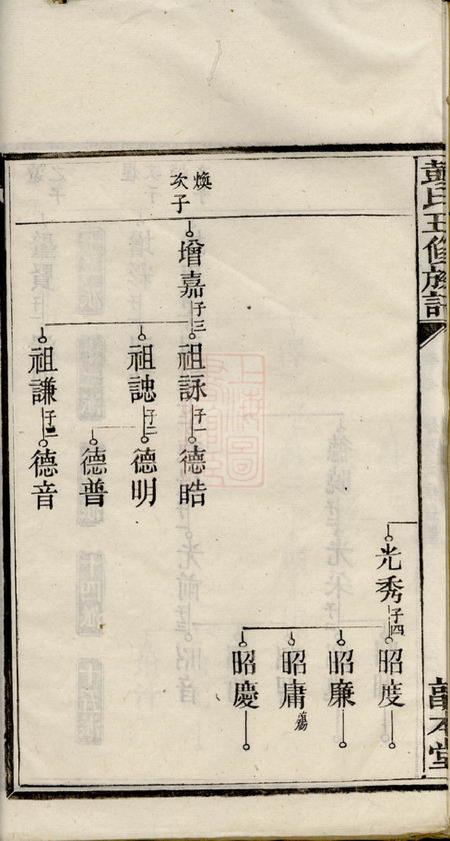 氏五修族
本堂
光秀
子四
昭度
昭廉
昭庸
殤
昭慶
煥
次子
增嘉
子三
祖詠
子一
德晧
祖誌
子二
德明
德普
祖謙
子二
德音